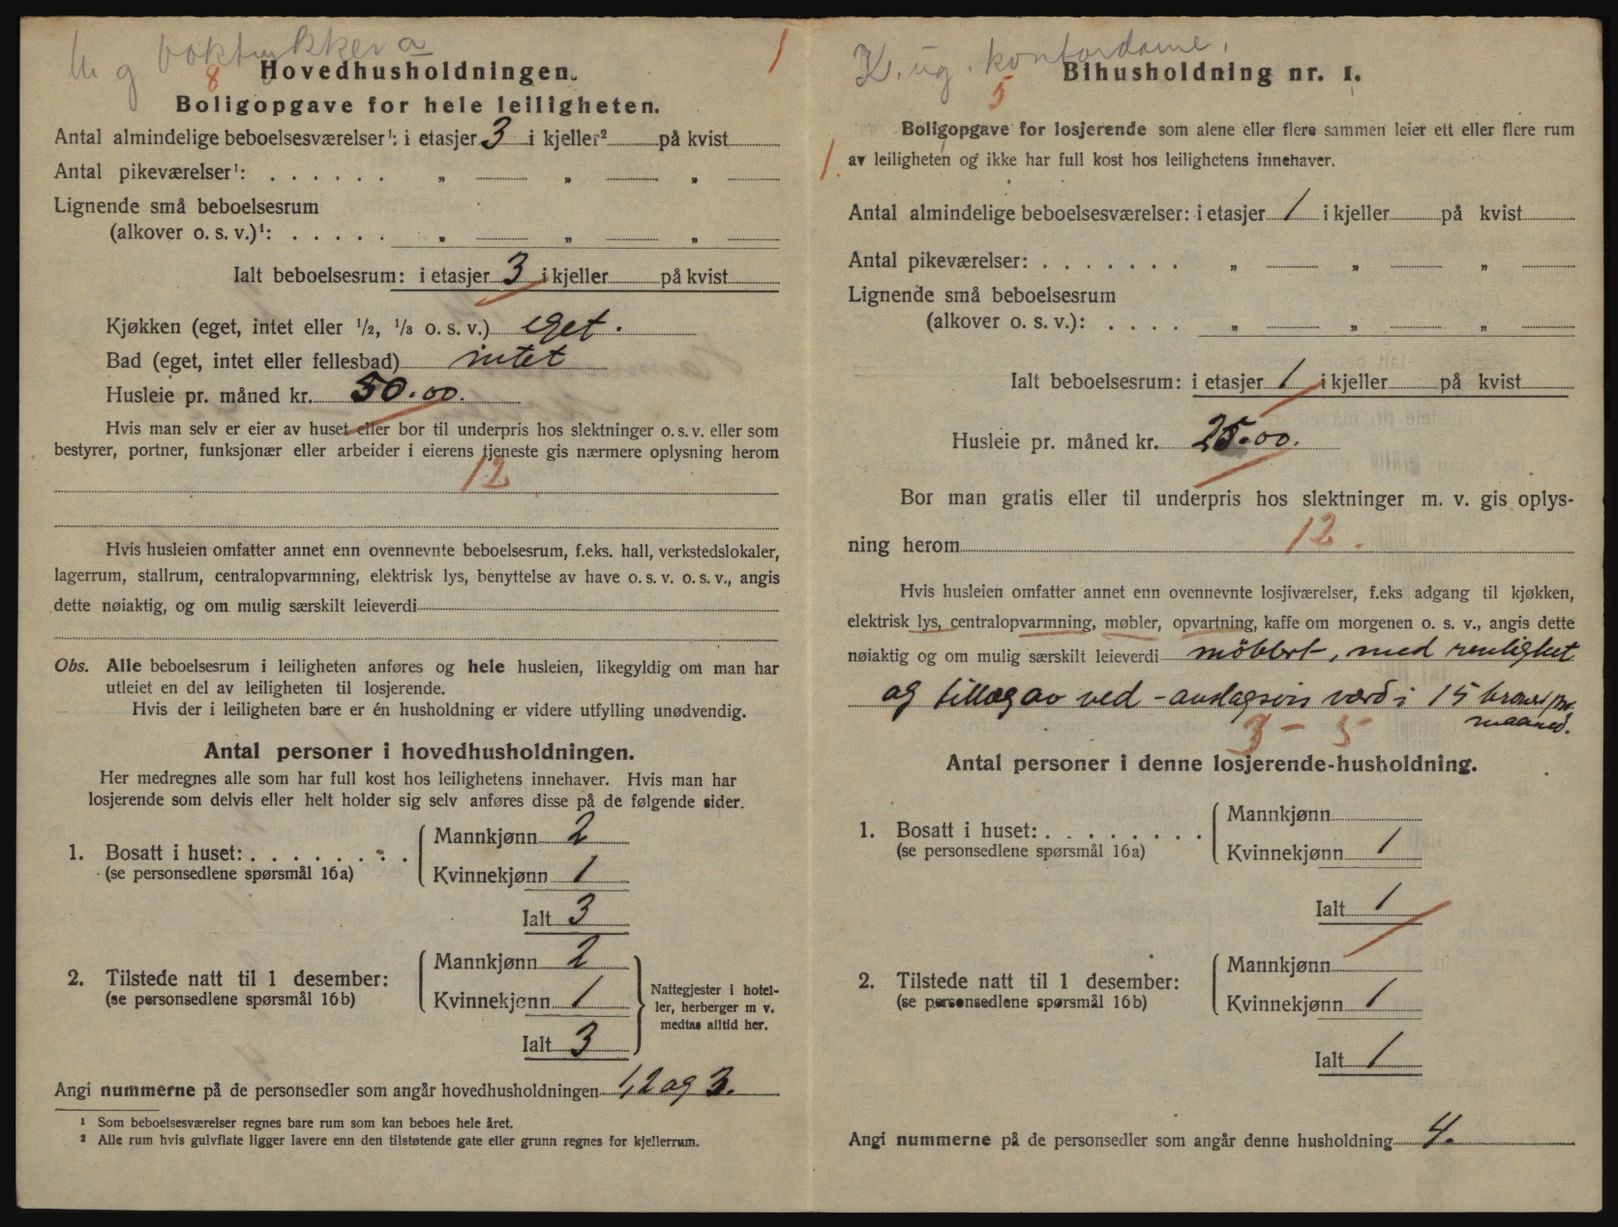 M g boktrykker a
8
1
Hovedhusholdningen.
Boligopgave for hele leiligheten.
Antal almindelige beboelsesværelser¹: i etasjer 3 i kjeller² på kvist
Antal pikeværelser¹: . . . . . . „ „ „
Lignende små beboelsesrum
(alkover o. s. v.)¹: . . . . . „ „ „
Ialt beboelsesrum: i etasjer 3 i kjeller på kvist
Kjøkken (eget, intet eller 1/2, 1/3 o. s. v.) eget.
Bad (eget, intet eller fellesbad) intet
Husleie pr. måned kr. 50.00.
Hvis man selv er eier av huset eller bor til underpris hos slektninger o. s. v. eller som
bestyrer, portner, funksjonær eller arbeider i eierens tjeneste gis nærmere oplysning herom
12
Hvis husleien omfatter annet enn ovennevnte beboelsesrum, f.eks. hall, verkstedslokaler,
lagerrum, stallrum, centralopvarmning, elektrisk lys, benyttelse av have o. s. v. o. s. v., angis
dette nøiaktig, og om mulig særskilt leieverdi
Obs. Alle beboelsesrum i leiligheten anføres og hele husleien, likegyldig om man har
utleiet en del av leiligheten til losjerende.
Hvis der i leiligheten bare er én husholdning er videre utfylling unødvendig.
Antal personer i hovedhusholdningen.
Her medregnes alle som har full kost hos leilighetens innehaver. Hvis man har
losjerende som delvis eller helt holder sig selv anføres disse på de følgende sider.
1. Bosatt i huset: . . . . . . . .
(se personsedlene spørsmål 16a)
Mannkjønn 2
Kvinnekjønn 1
Ialt 3
2. Tilstede natt til 1 desember:
(se personsedlene spørsmål 16b)
Mannkjønn 2
Kvinnekjønn 1
Ialt 3
Nattegjester i hotel-
ler, herberger m v.
medtas alltid her.
Angi nummerne på de personsedler som angår hovedhusholdningen 1,2 og 3.
¹ Som beboelsesværelser regnes bare rum som kan beboes hele året.
² Alle rum hvis gulvflate ligger lavere enn den tilstøtende gate eller grunn regnes for kjellerrum.
K. ug. kontordame.
5
Bihusholdning nr. 1.
Boligopgave for losjerende som alene eller flere sammen leier ett eller flere rum
1. av leiligheten og ikke har full kost hos leilighetens innehaver.
Antal almindelige beboelsesværelser: i etasjer 1 i kjeller på kvist
Antal pikeværelser: . . . . . . . „ „ „
Lignende små beboelsesrum
(alkover o. s. v.): . . . . „ „ „
Ialt beboelsesrum: i etasjer 1 i kjeller på kvist
Husleie pr. måned kr. 25.00.
Bor man gratis eller til underpris hos slektninger m. v. gis oplys-
ning herom 12.
Hvis husleien omfatter annet enn ovennevnte losjiværelser, f.eks adgang til kjøkken,
elektrisk lys, centralopvarmning, møbler, opvartning, kaffe om morgenen o. s. v., angis dette
nøiaktig og om mulig særskilt leieverdi møblert, med renlighet
og tillæg av ved - anslagsvis værd i 15 kroner pr.
maaned.
3 - 5
Antal personer i denne losjerende-husholdning.
1. Bosatt i huset: . . . . . . . .
(se personsedlene spørsmål 16a)
Mannkjønn
Kvinnekjønn 1
Ialt 1
2. Tilstede natt til 1 desember:
(se personsedlene spørsmål 16b)
Mannkjønn
Kvinnekjønn 1
Ialt 1
Angi nummerne på de personsedler som angår denne husholdning 4.